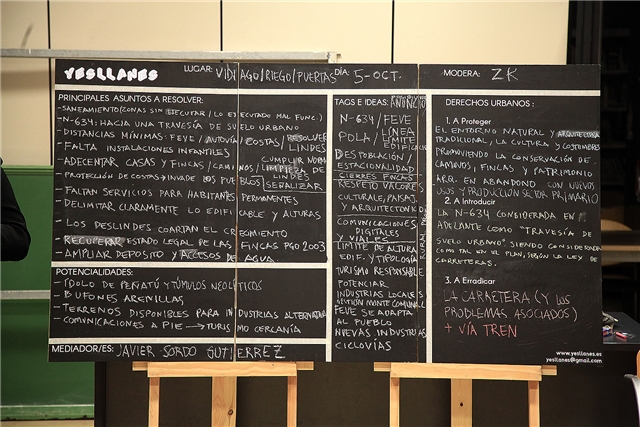 YESLLANES
LUGAR: VIDIAGO/RIEGO/PUERTAS DÍA: 5-OCT. MODERA: ZK
PRINCIPALES ASUNTOS A RESOLVER:
-SANEAMIENTO/ZONAS SIN EJECUTAR/LO EJECUTADO MAL FUNC.)
-N-634: HACIA UNA TRAVESÍA DE SUELO URBANO
-DISTANCIAS MÍNIMAS: FEVE/AUTOVÍA/COSTAS/RESOLVER LINDES
-FALTA INSTALACIONES INFANTILES
-ADECENTAR CASAS Y FINCAS/CAMINOS/LIMPIEZA DE LINDES
CUMPLIR NORM
-PROTECCIÓN DE COSTAS→INVADE LOS PUEBLOS SEÑALIZAR
-FALTAN SERVICIOS PARA HABITANTES PERMANENTES
-DELIMITAR CLARAMENTE LO EDIFICABLE Y ALTURAS
-LOS DESLINDES COARTAN EL CRECIMIENTO
-RECUPERAR ESTADO LEGAL DE LAS FINCAS PGO 2003
-AMPLIAR DEPÓSITO Y ACCESOS DE AGUA.
POTENCIALIDADES:
-ÍDOLO DE PEÑATÚ Y TÚMULOS NEOLÍTICOS
-BUFONES ARENILLAS
-TERRENOS DISPONIBLES PARA INDUSTRIAS ALTERNATIVA
-COMUNICACIONES A PIE→TURISMO CERCANÍA
MEDIADOR/ES: JAVIER SORDO GUTIERREZ
TAGS E IDEAS:
N-634/FEVE
POLA/LÍNEA LÍMITE EDIFICABLE
DESPOBLACIÓN/
ESTACIONALIDAD
CIERRES FINCAS
RESPETO VALORES
CULTURALE, PAISAJ.
Y ARQUITECTÓN
COMUNICACIONES
DIGITALES
Y VIALES
LÍMITE DE ALTURA
EDIF. Y TIPOLOGÍA
TURISMO RESPONSABLE
POTENCIAR
INDUSTRIAS LOCALES
GESTIÓN MONTE COMUNAL
FEVE SE ADAPTA
AL PUEBLO
NUEVAS INDUSTRIAS
CICLOVÍAS
DERECHOS URBANOS:
1. A Proteger
EL ENTORNO NATURAL Y ARQUITECTURA
TRADICIONAL, LA CULTURA Y COSTUMBRES
PROMOVIENDO LA CONSERVACIÓN DE
CAMINOS, FINCAS Y PATRIMONIO
ARQ. EN ABANDONO CON NUEVOS
USOS Y PRODUCCIÓN SECTOR PRIMARIO
2. A Introducir
LA N-634 CONSIDERADA EN
ADELANTE COMO "TRAVESÍA DE
SUELO URBANO" SIENDO CONSIDERADA
COMO TAL EN EL PLAN, SEGÚN LA LEY DE
CARRETERAS.
3. A Erradicar
LA CARRETERA (Y LOS
PROBLEMAS ASOCIADOS)
+ VÍA TREN
www.yesllanes.es
yesllanes@gmail.com